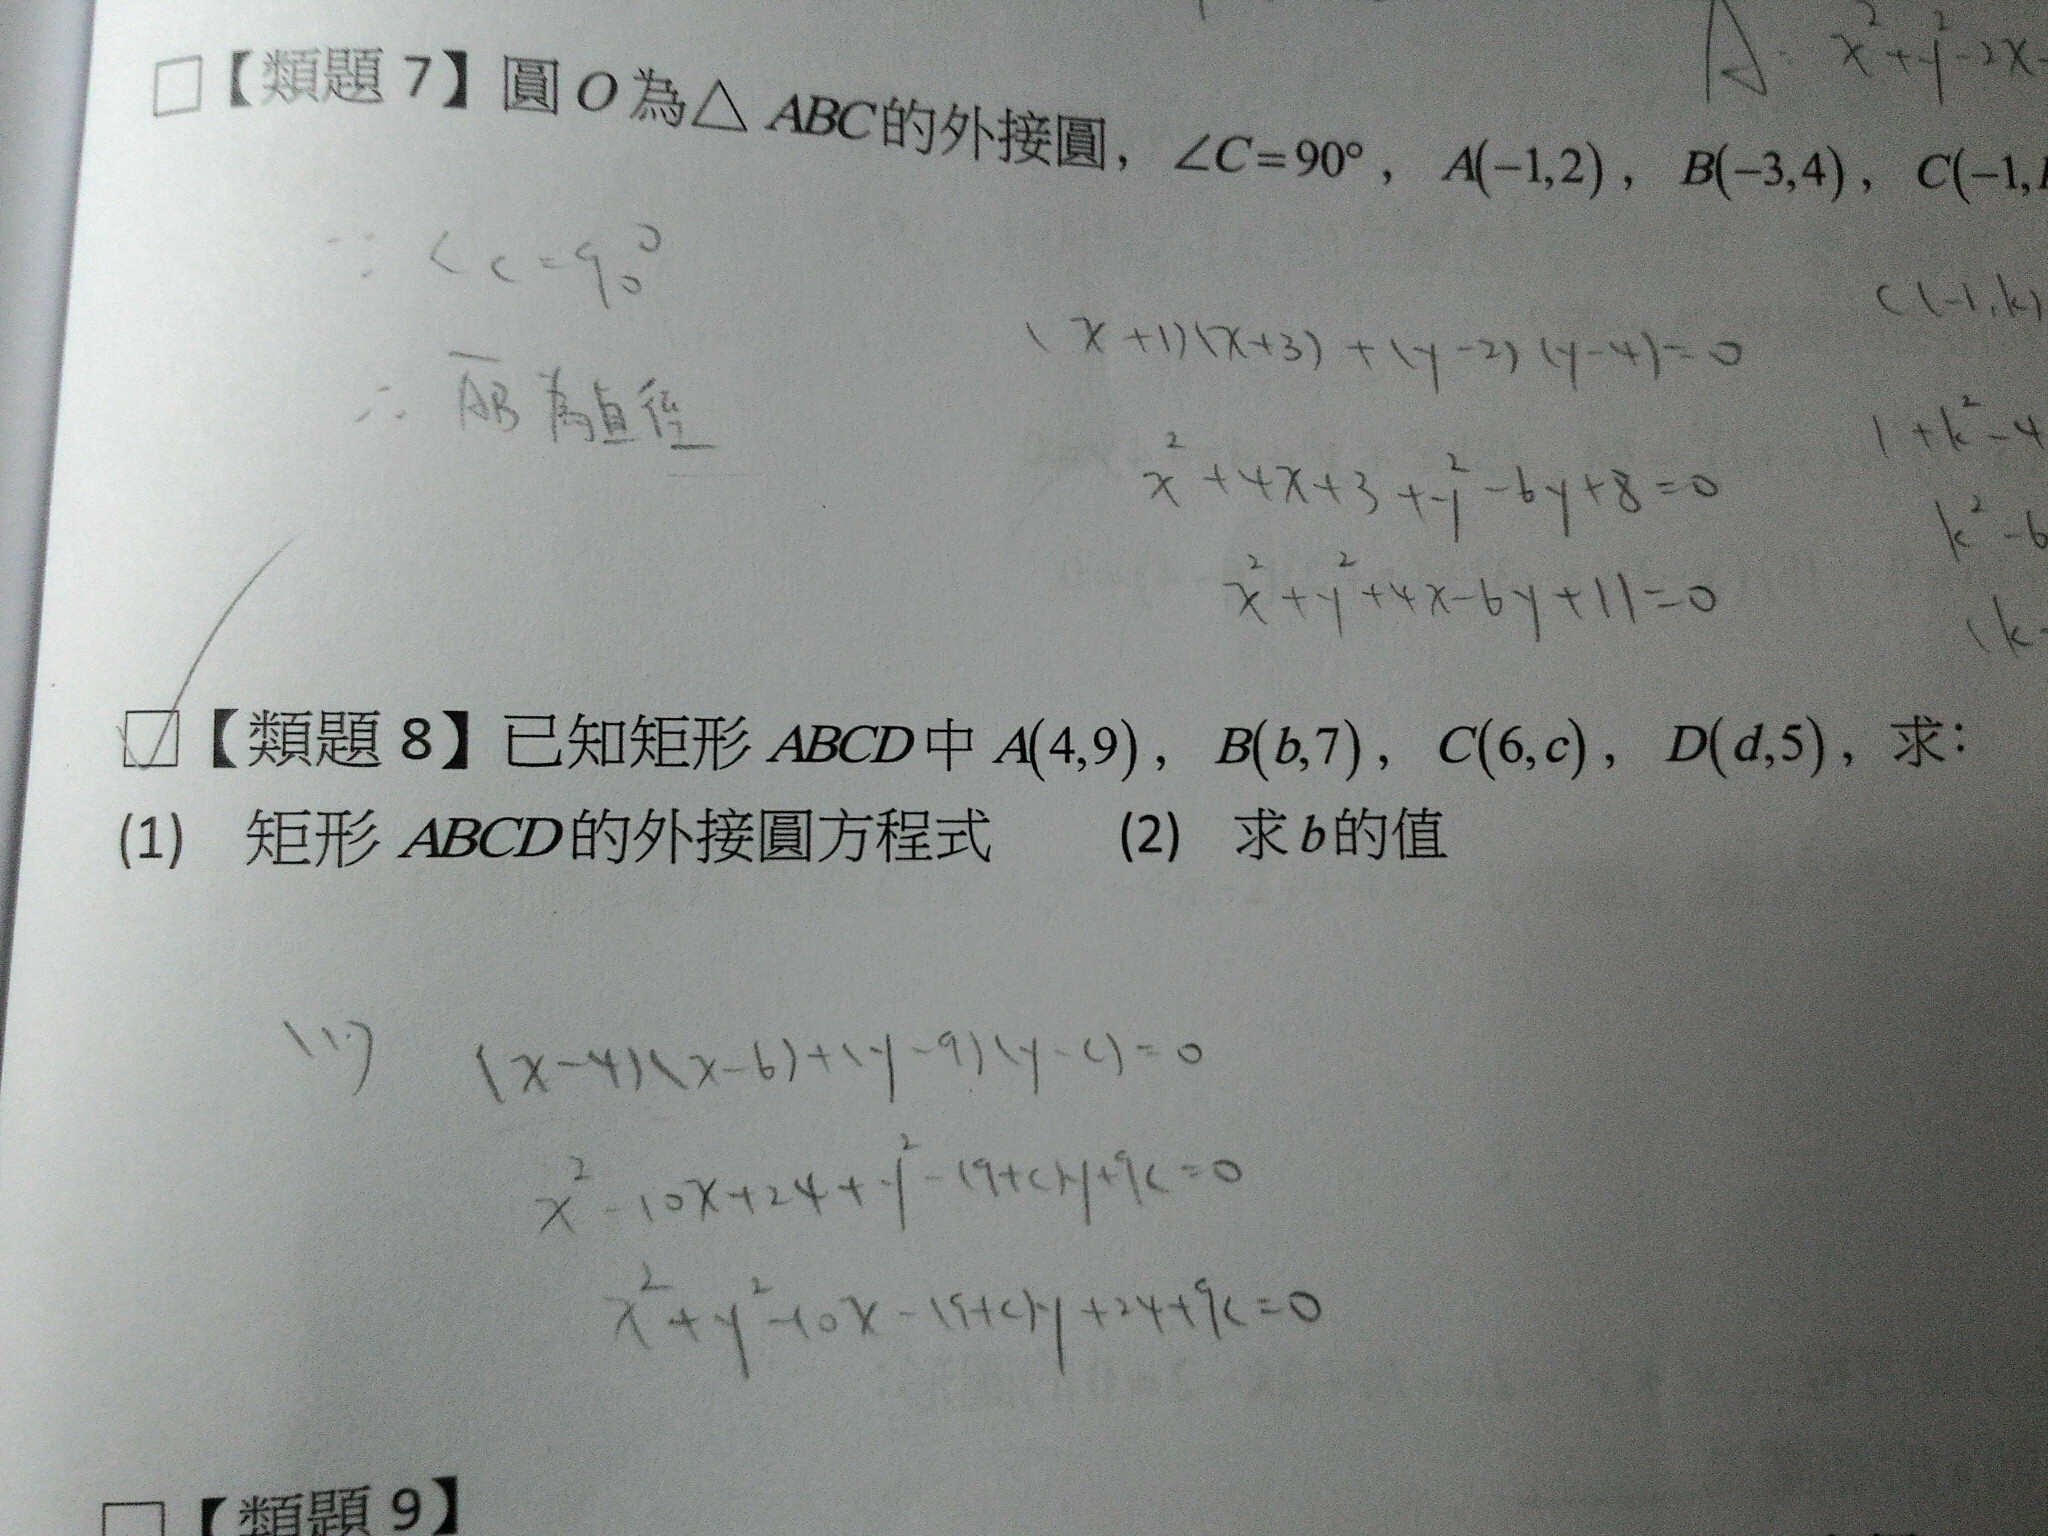 A: x²+y²-2x-
□【類題 7】圓 O 為△ ABC的外接圓，∠C=90°，A(-1,2)，B(-3,4)，C(-1,
∵ <c=90°
C(-1,k)
(x+1)(x+3)+(y-2)(y-4)=0
∴ AB 為直徑
1+k²-4
x²+4x+3+y²-6y+8=0
k²-6
x²+y²+4x-6y+11=0
(k-
□【類題 8】已知矩形 ABCD中 A(4,9)，B(b,7)，C(6,c)，D(d,5)，求：
(1) 矩形 ABCD的外接圓方程式 (2) 求b的值
(1) (x-4)(x-6)+(y-9)(y-c)=0
x²-10x+24+y²-(9+c)y+9c=0
x²+y²-10x-(9+c)y+24+9c=0
□【類題 9】